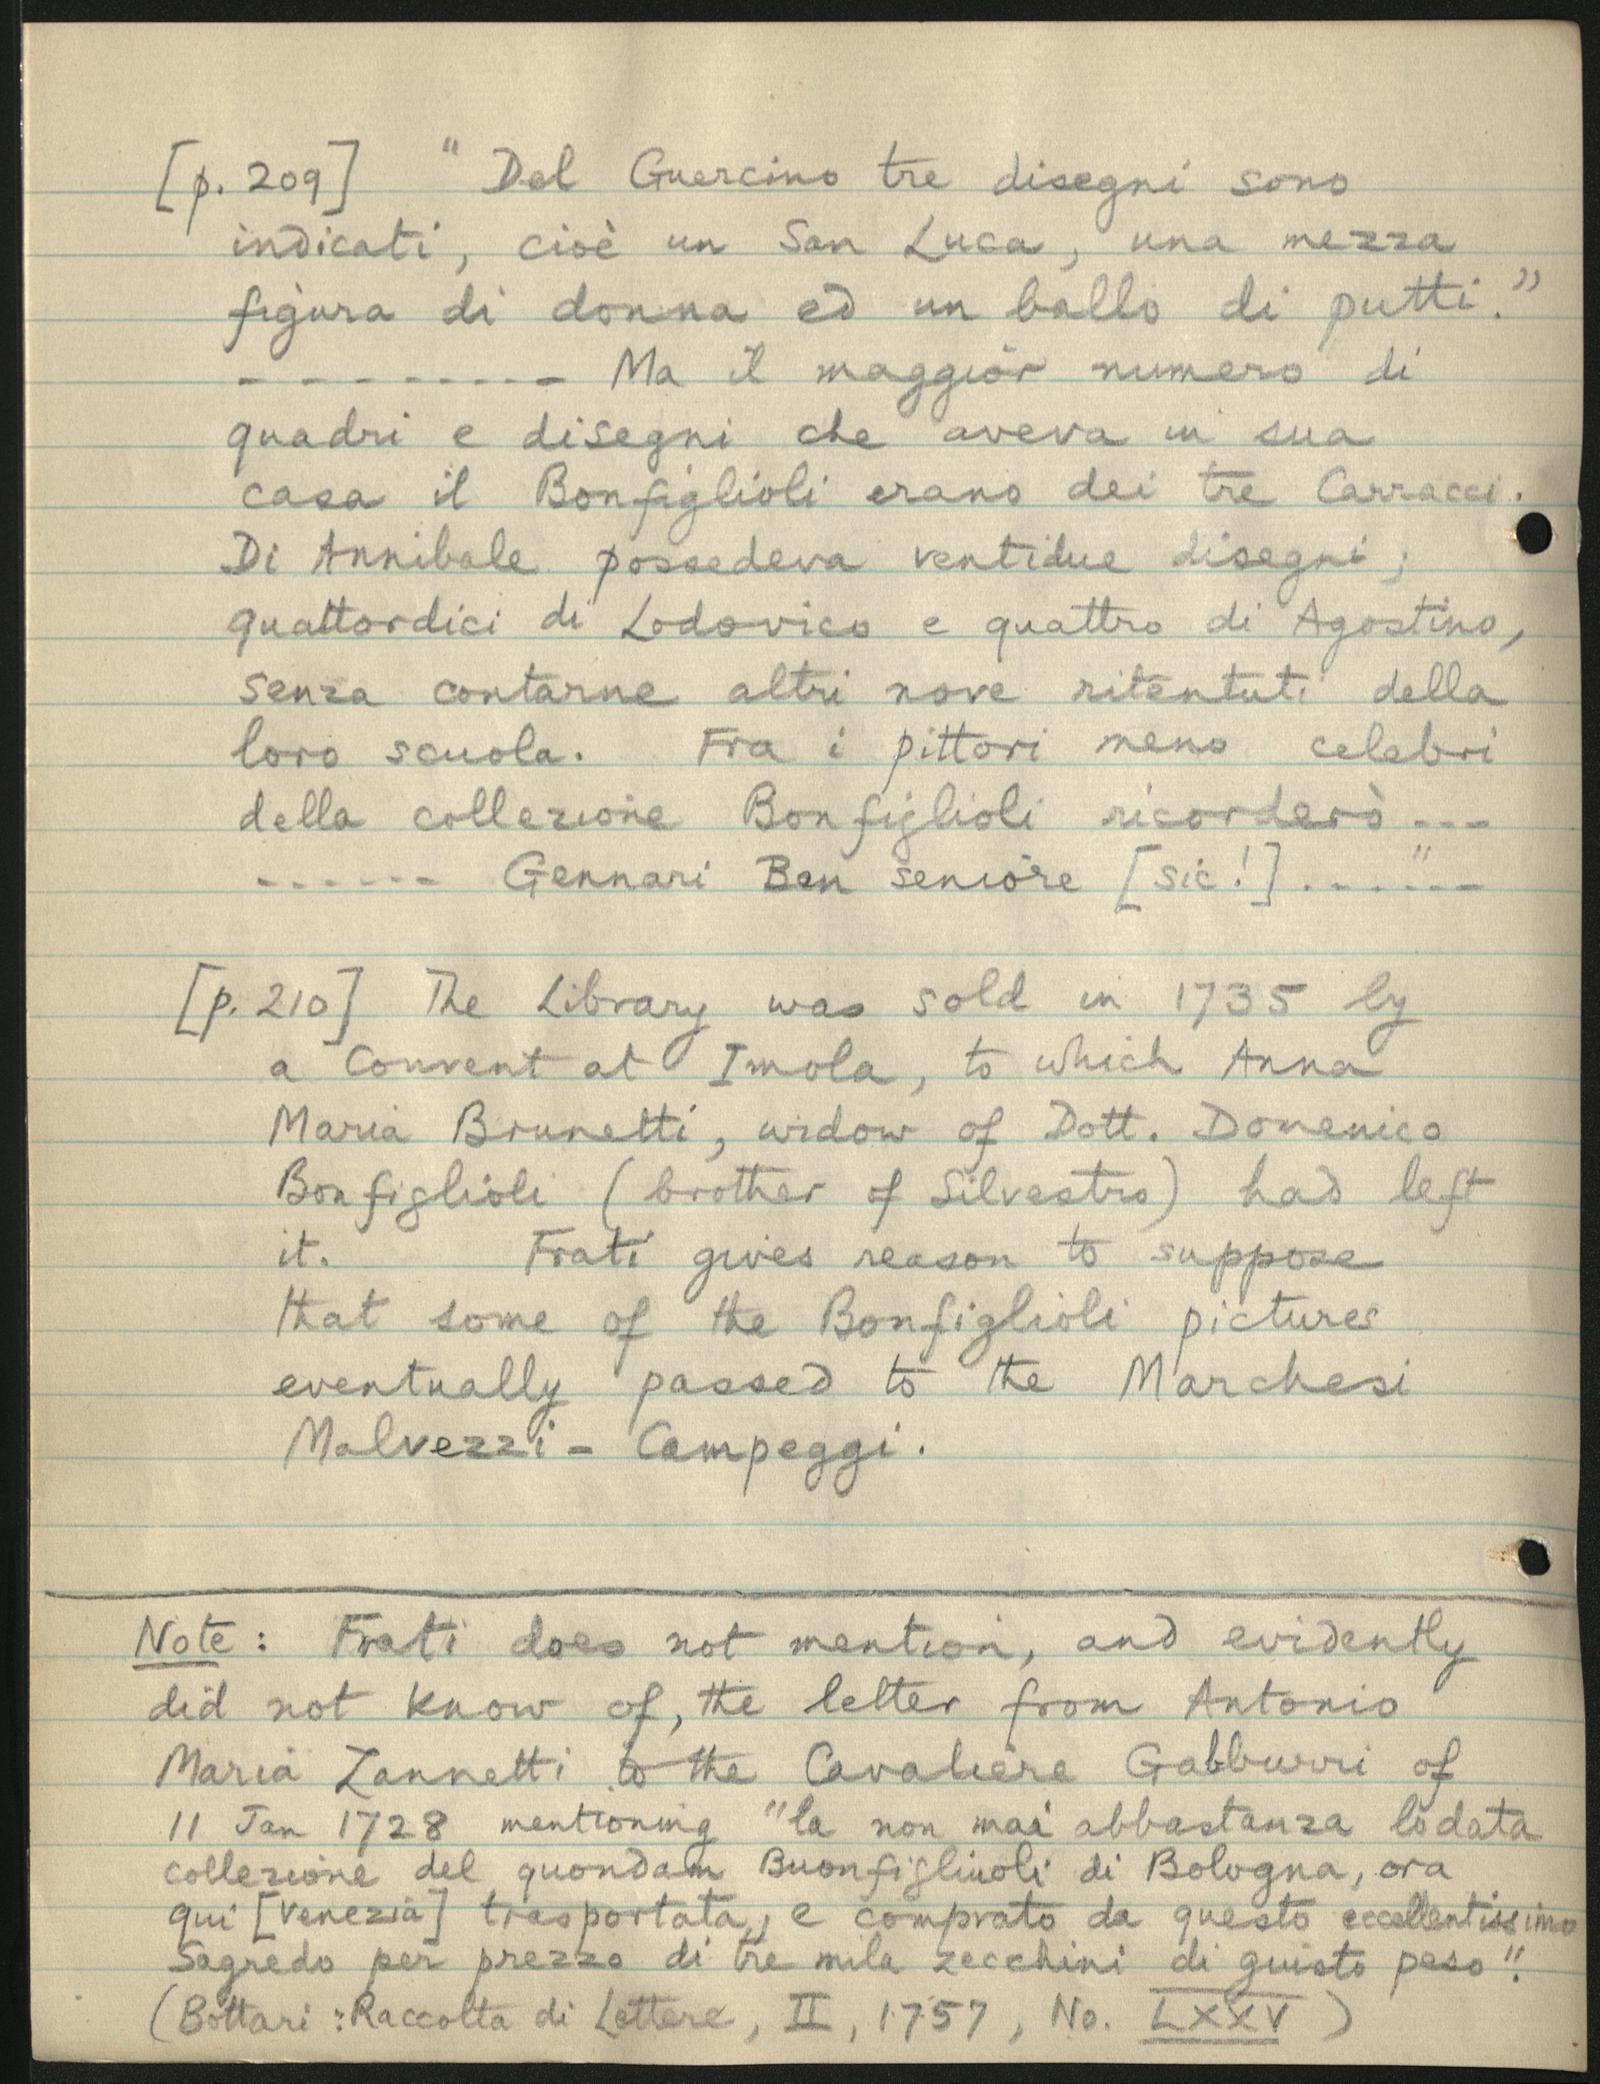 [p. 209] "Del Guercino tre disegni sono
indicati, cioè un San Luca, una mezza
figura di donna ed un ballo di putti."
- - - - - - - - - Ma il maggior numero di
quadri e disegni che aveva in sua
casa il Bonfiglioli erano dei tre Carracci.
Di Annibale possedeva ventidue disegni;
quattordici di Lodovico e quattro di Agostino,
senza contarne altri nove ritentuti della
loro scuola. Fra i pittori meno celebri
della collezione Bonfiglioli ricorderò ---
- - - - - - Gennari Ben seniore [sic!] . - - - " - -
[p. 210] The Library was sold in 1735 by
a Convent at Imola, to which Anna
Maria Brunetti, widow of Dott. Domenico
Bonfiglioli (brother of Silvestro) had left
it. Frati gives reason to suppose
that some of the Bonfiglioli pictures
eventually passed to the Marchesi
Malvezzi - Campeggi.
Note: Frati does not mention, and evidently
did not know of, the letter from Antonio
Maria Zannetti to the Cavaliere Gabburri of
11 Jan 1728 mentioning "la non mai abbastanza lodata
collezione del quondam Buonfigliuoli di Bologna, ora
qui [Venezia] trasportata, e comprato da questo eccellentissimo
Sagredo per prezzo di tre mila zecchini di giusto peso".
(Bottari: Raccolta di Lettere, II, 1757, No. LXXV)